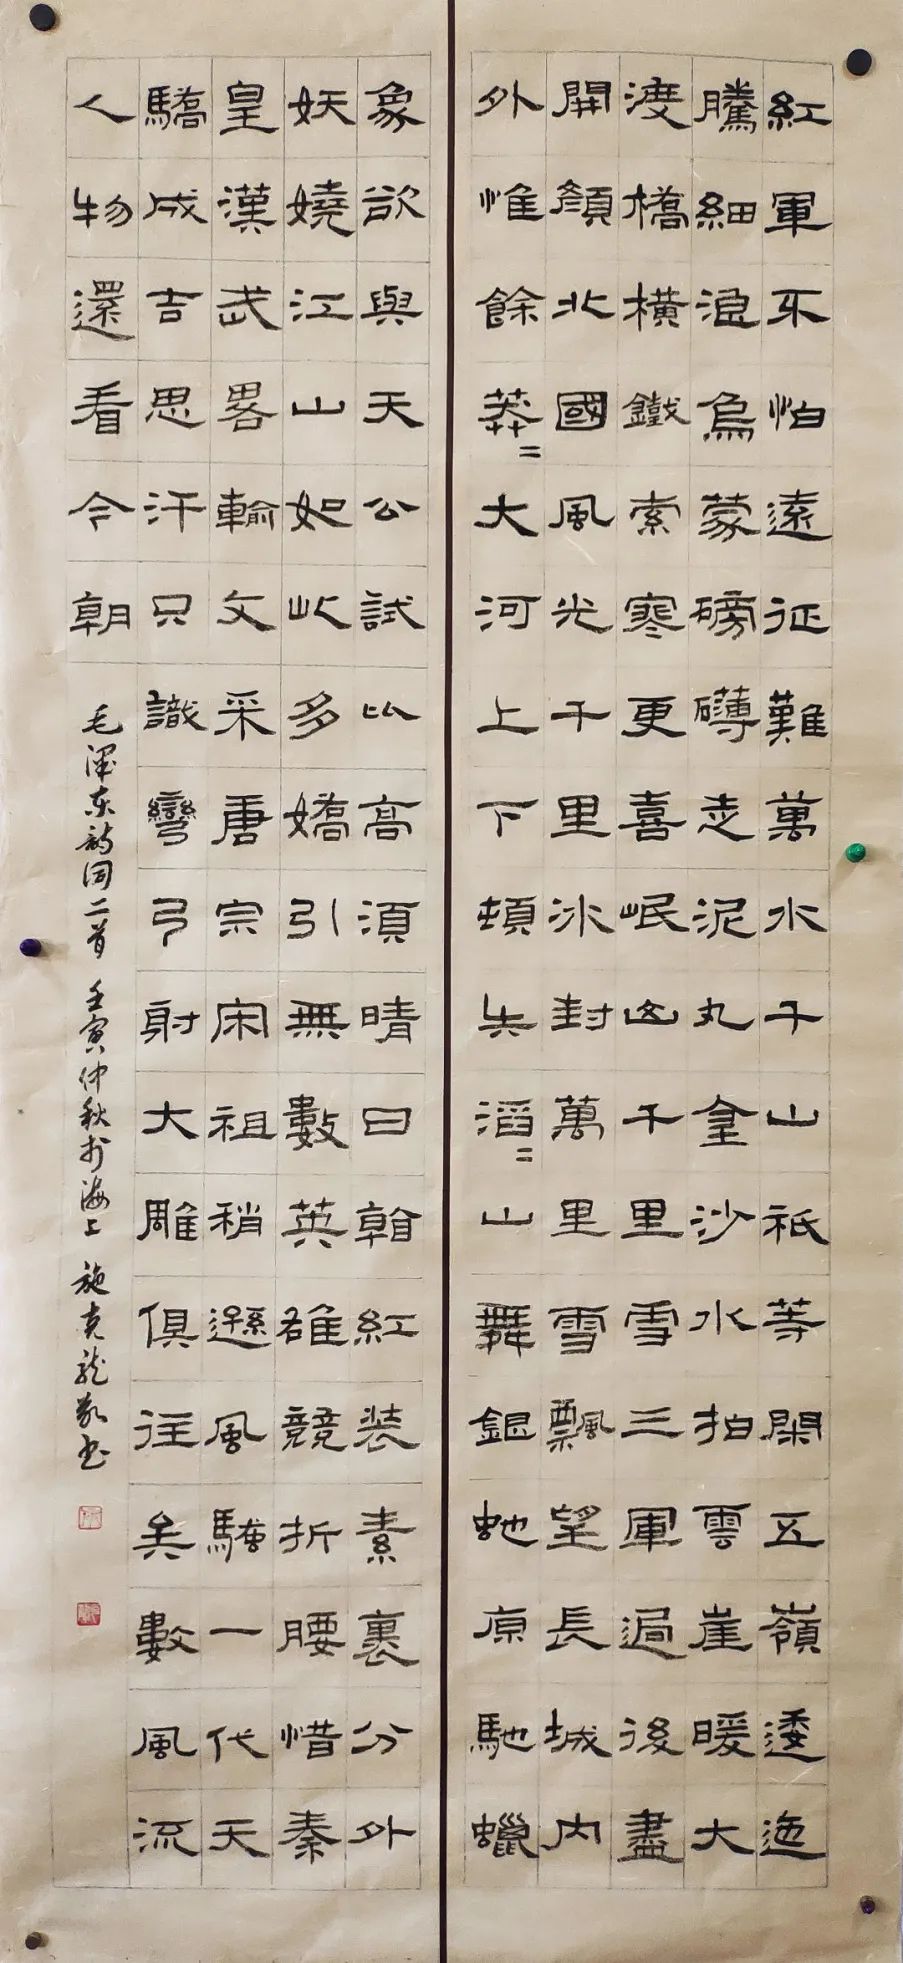 紅軍不怕遠征難萬水千山祇等閑五嶺逶迤
騰細浪烏蒙磅礴走泥丸金沙水拍雲崖暖大
渡橋橫鐵索寒更喜岷山千里雪三軍過後盡
開顏北國風光千里冰封萬里雪飄望長城內
外惟餘莽〻大河上下頓失滔〻山舞銀蛇原馳蠟
象欲與天公試比高須晴日翰紅装素裹分外
妖嬈江山如此多嬌引無數英雄競折腰惜秦
皇漢武畧輸文采唐宗宋祖稍遜風騷一代天
驕成吉思汗只識彎弓射大雕俱往矣數風流
人物還看今朝
毛泽东诗词二首 壬寅仲秋於海上 施克龙敬书